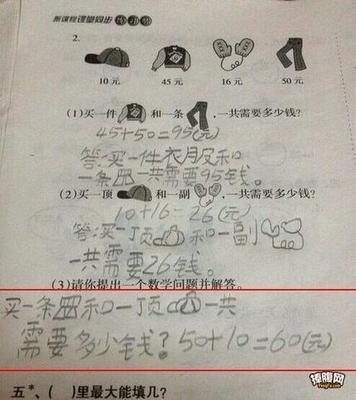 新课程课堂同步练习册
2.
10元 45元 16元 50元
(1)买一件 和一条 ,一共需要多少钱?
45+50=95(元)
答:买一件衣服和
一条 一共需要95钱。
(2)买一顶 和一副 ,一共需要多少钱?
10+16=26(元)
答:买一顶 和一副
一共需要26钱。
(3)请你提出一个数学问题并解答。
买一条 和一顶 一共
需要多少钱?50+10=60(元)
五*、( )里最大能填几?
捧腹网